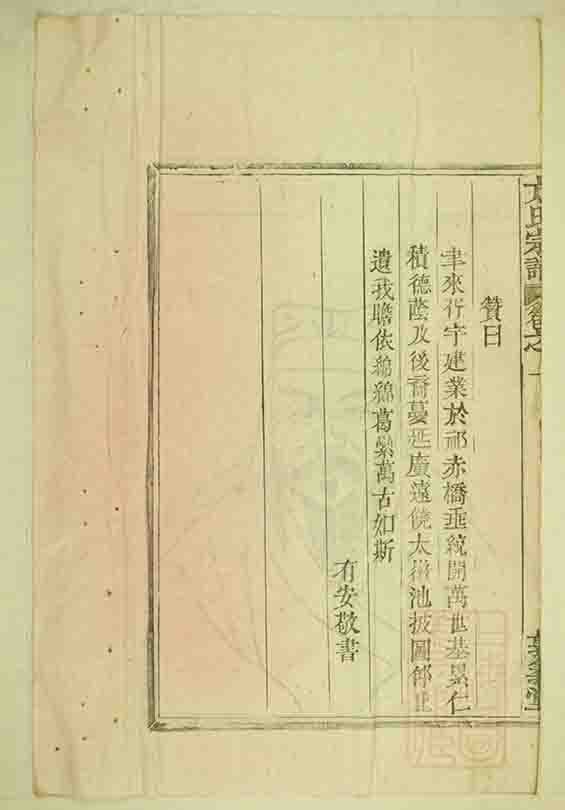 氏宗譜 卷之一
贊曰
聿來行宇建業於祁赤橋垂統開萬世基累仁
積德蔭及後裔蔓延廣遠饒太池披圖
遺我瞻依綿綿葛萬古如斯
有安敬書